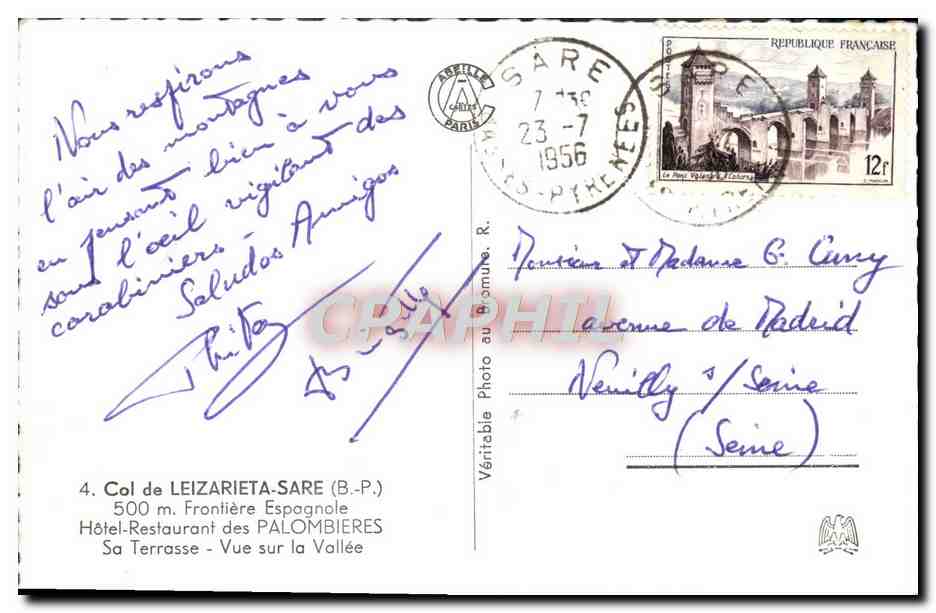 Nous respirons
l'air des montagnes
en pensant bien à vous
sous l'oeil vigilant des
carabiniers -
Saludos Amigos
4. Col de LEIZARIETA-SARE (B.-P.)
500 m. Frontière Espagnole
Hôtel-Restaurant des PALOMBIERES
Sa Terrasse - Vue sur la Vallée
ABEILLE
CARTES
PARIS
Véritable Photo au Bromure. R.
SARE
23 -7
1956
PYRENEES
SARE
POSTES
REPUBLIQUE FRANÇAISE
Le Pont Valentré à Cahors
12F
Monsieur et Madame G. Cuny
avenue de Madrid
Neuilly s/ Seine
(Seine)
CPAPHIL